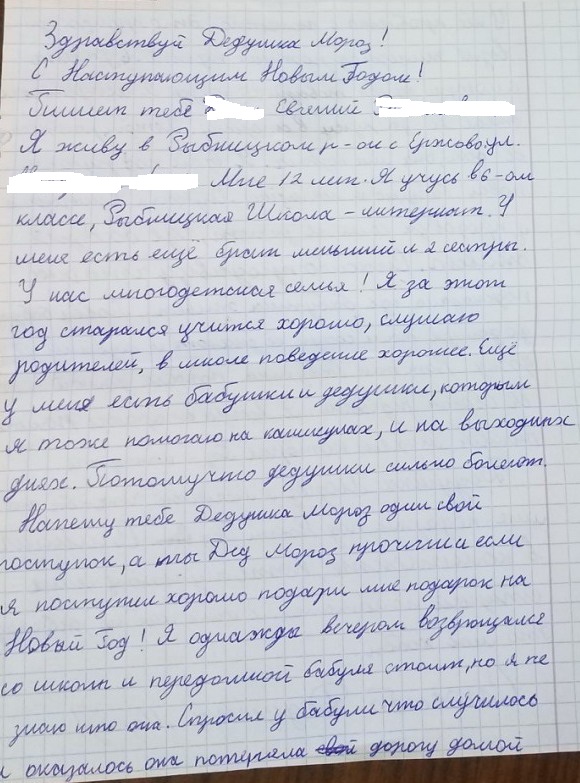 Здравствуй Дедушка Мороз!
С Наступающим Новым Годом!
Пишет тебе Евгений
Я живу в Рыбницком р-он с Ержово ул.
Мне 12 лет. Я учусь в 6-ом
классе, Рыбницкая Школа-интернат. У
меня есть ещё брат меньший и 2 сестры.
У нас многодетская семья! Я за этот
год старался учится хорошо, слушаю
родителей, в школе поведение хорошее. Ещё
у меня есть бабушки и дедушки, которым
я тоже помогаю на каникулах, и на выходных
днях. Потомучто дедушки сильно болеют.
Напишу тебе Дедушка Мороз один свой
поступок, а ты Дед Мороз прочти и если
я поступил хорошо подари мне подарок на
Новый Год! Я однажды вечером возврощался
со школы и передомной бабуля стоит, но я не
знаю кто она. Спросил у бабули что случилось
и оказалось она потеряла дорогу домой